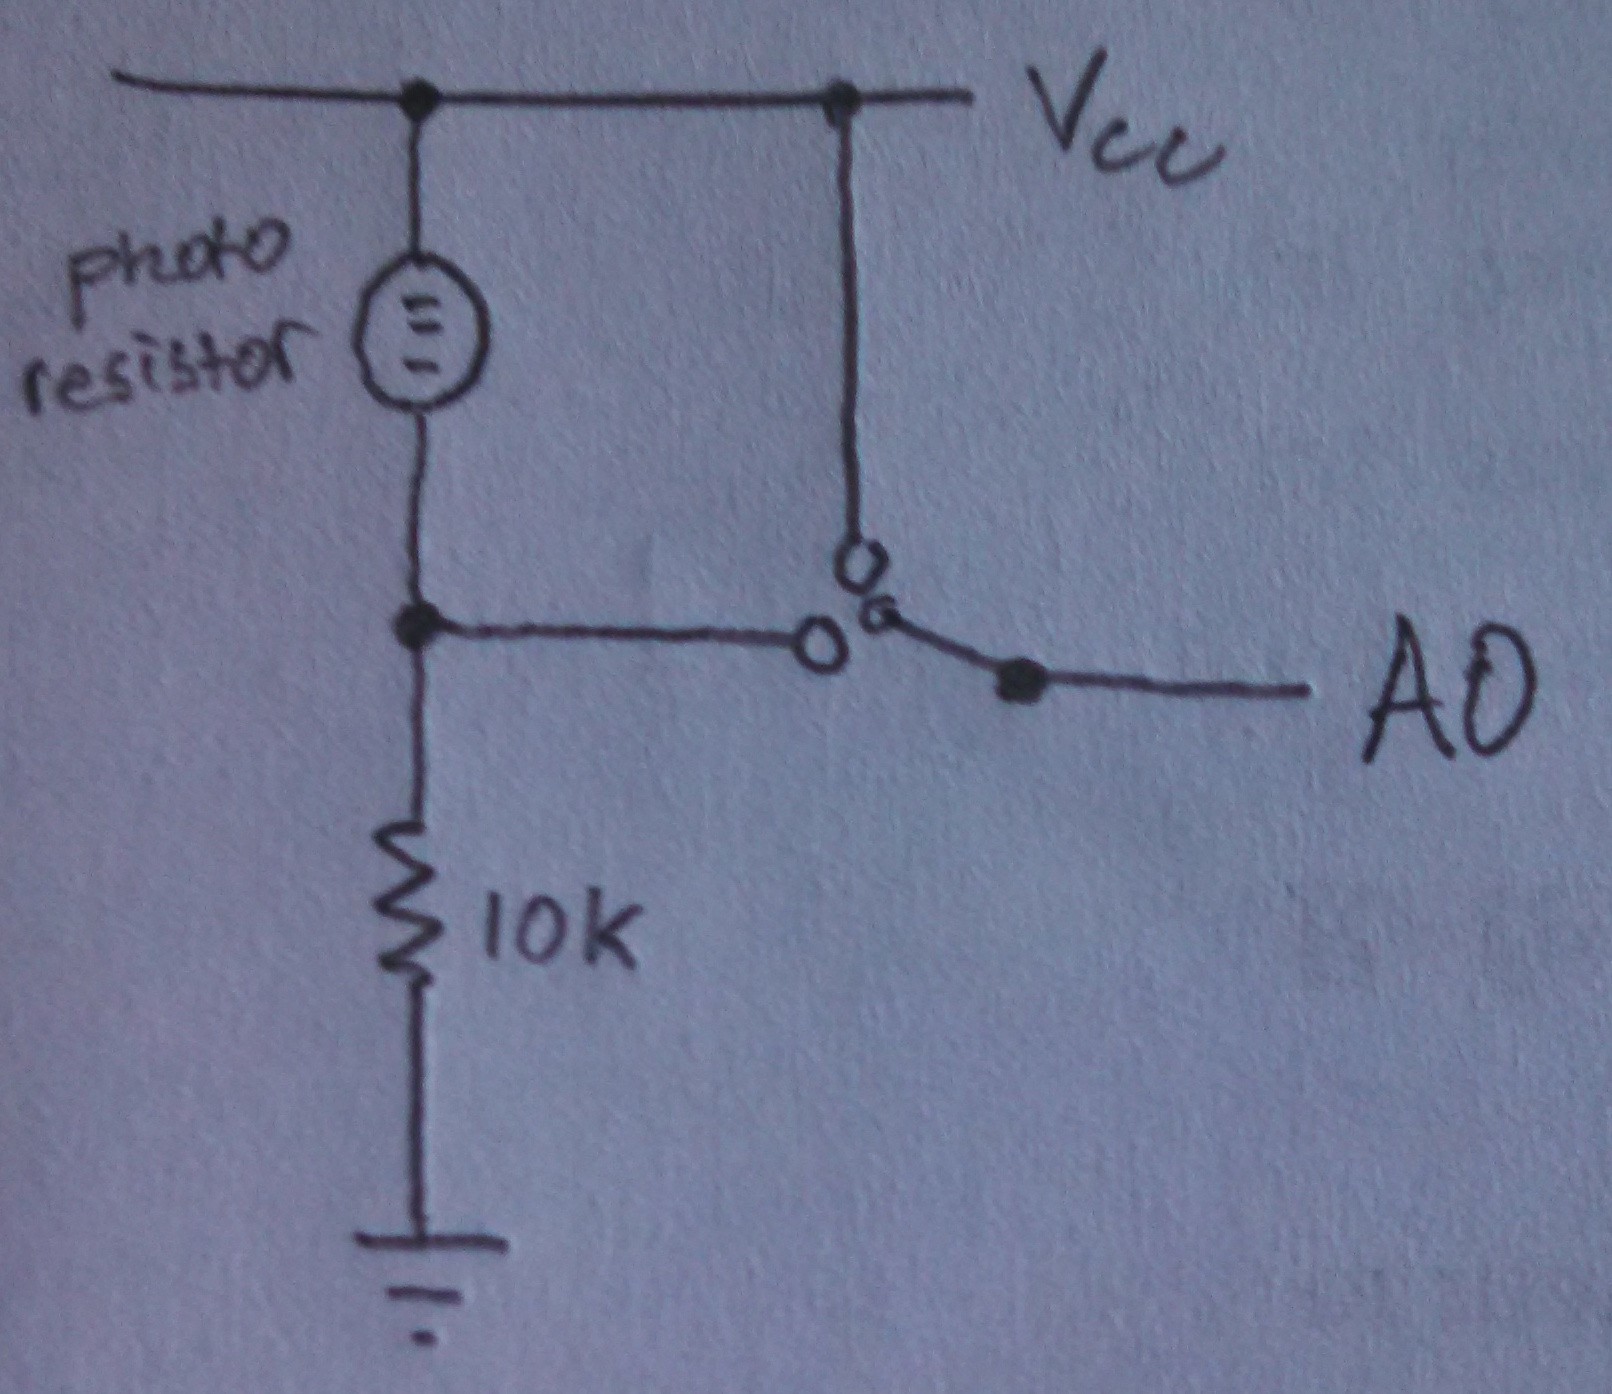 Vcc
photo
resistor
A0
10K